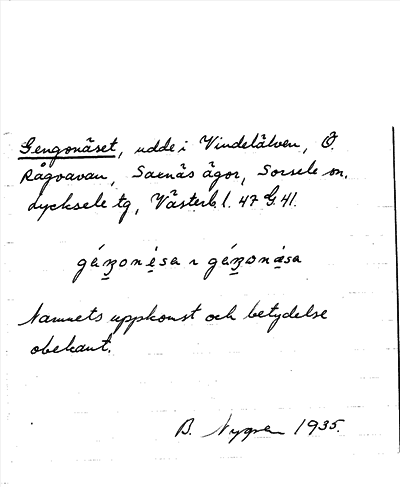 Gengonäset, udde i Vindelälven, Ö.
Rågvavan, Saxnäs ägor, Sorsele sn,
Lycksele tg, Västerb. l. 47 G. 41.
Namnets uppkomst och betydelse
obekant.
B. Nygren 1935.